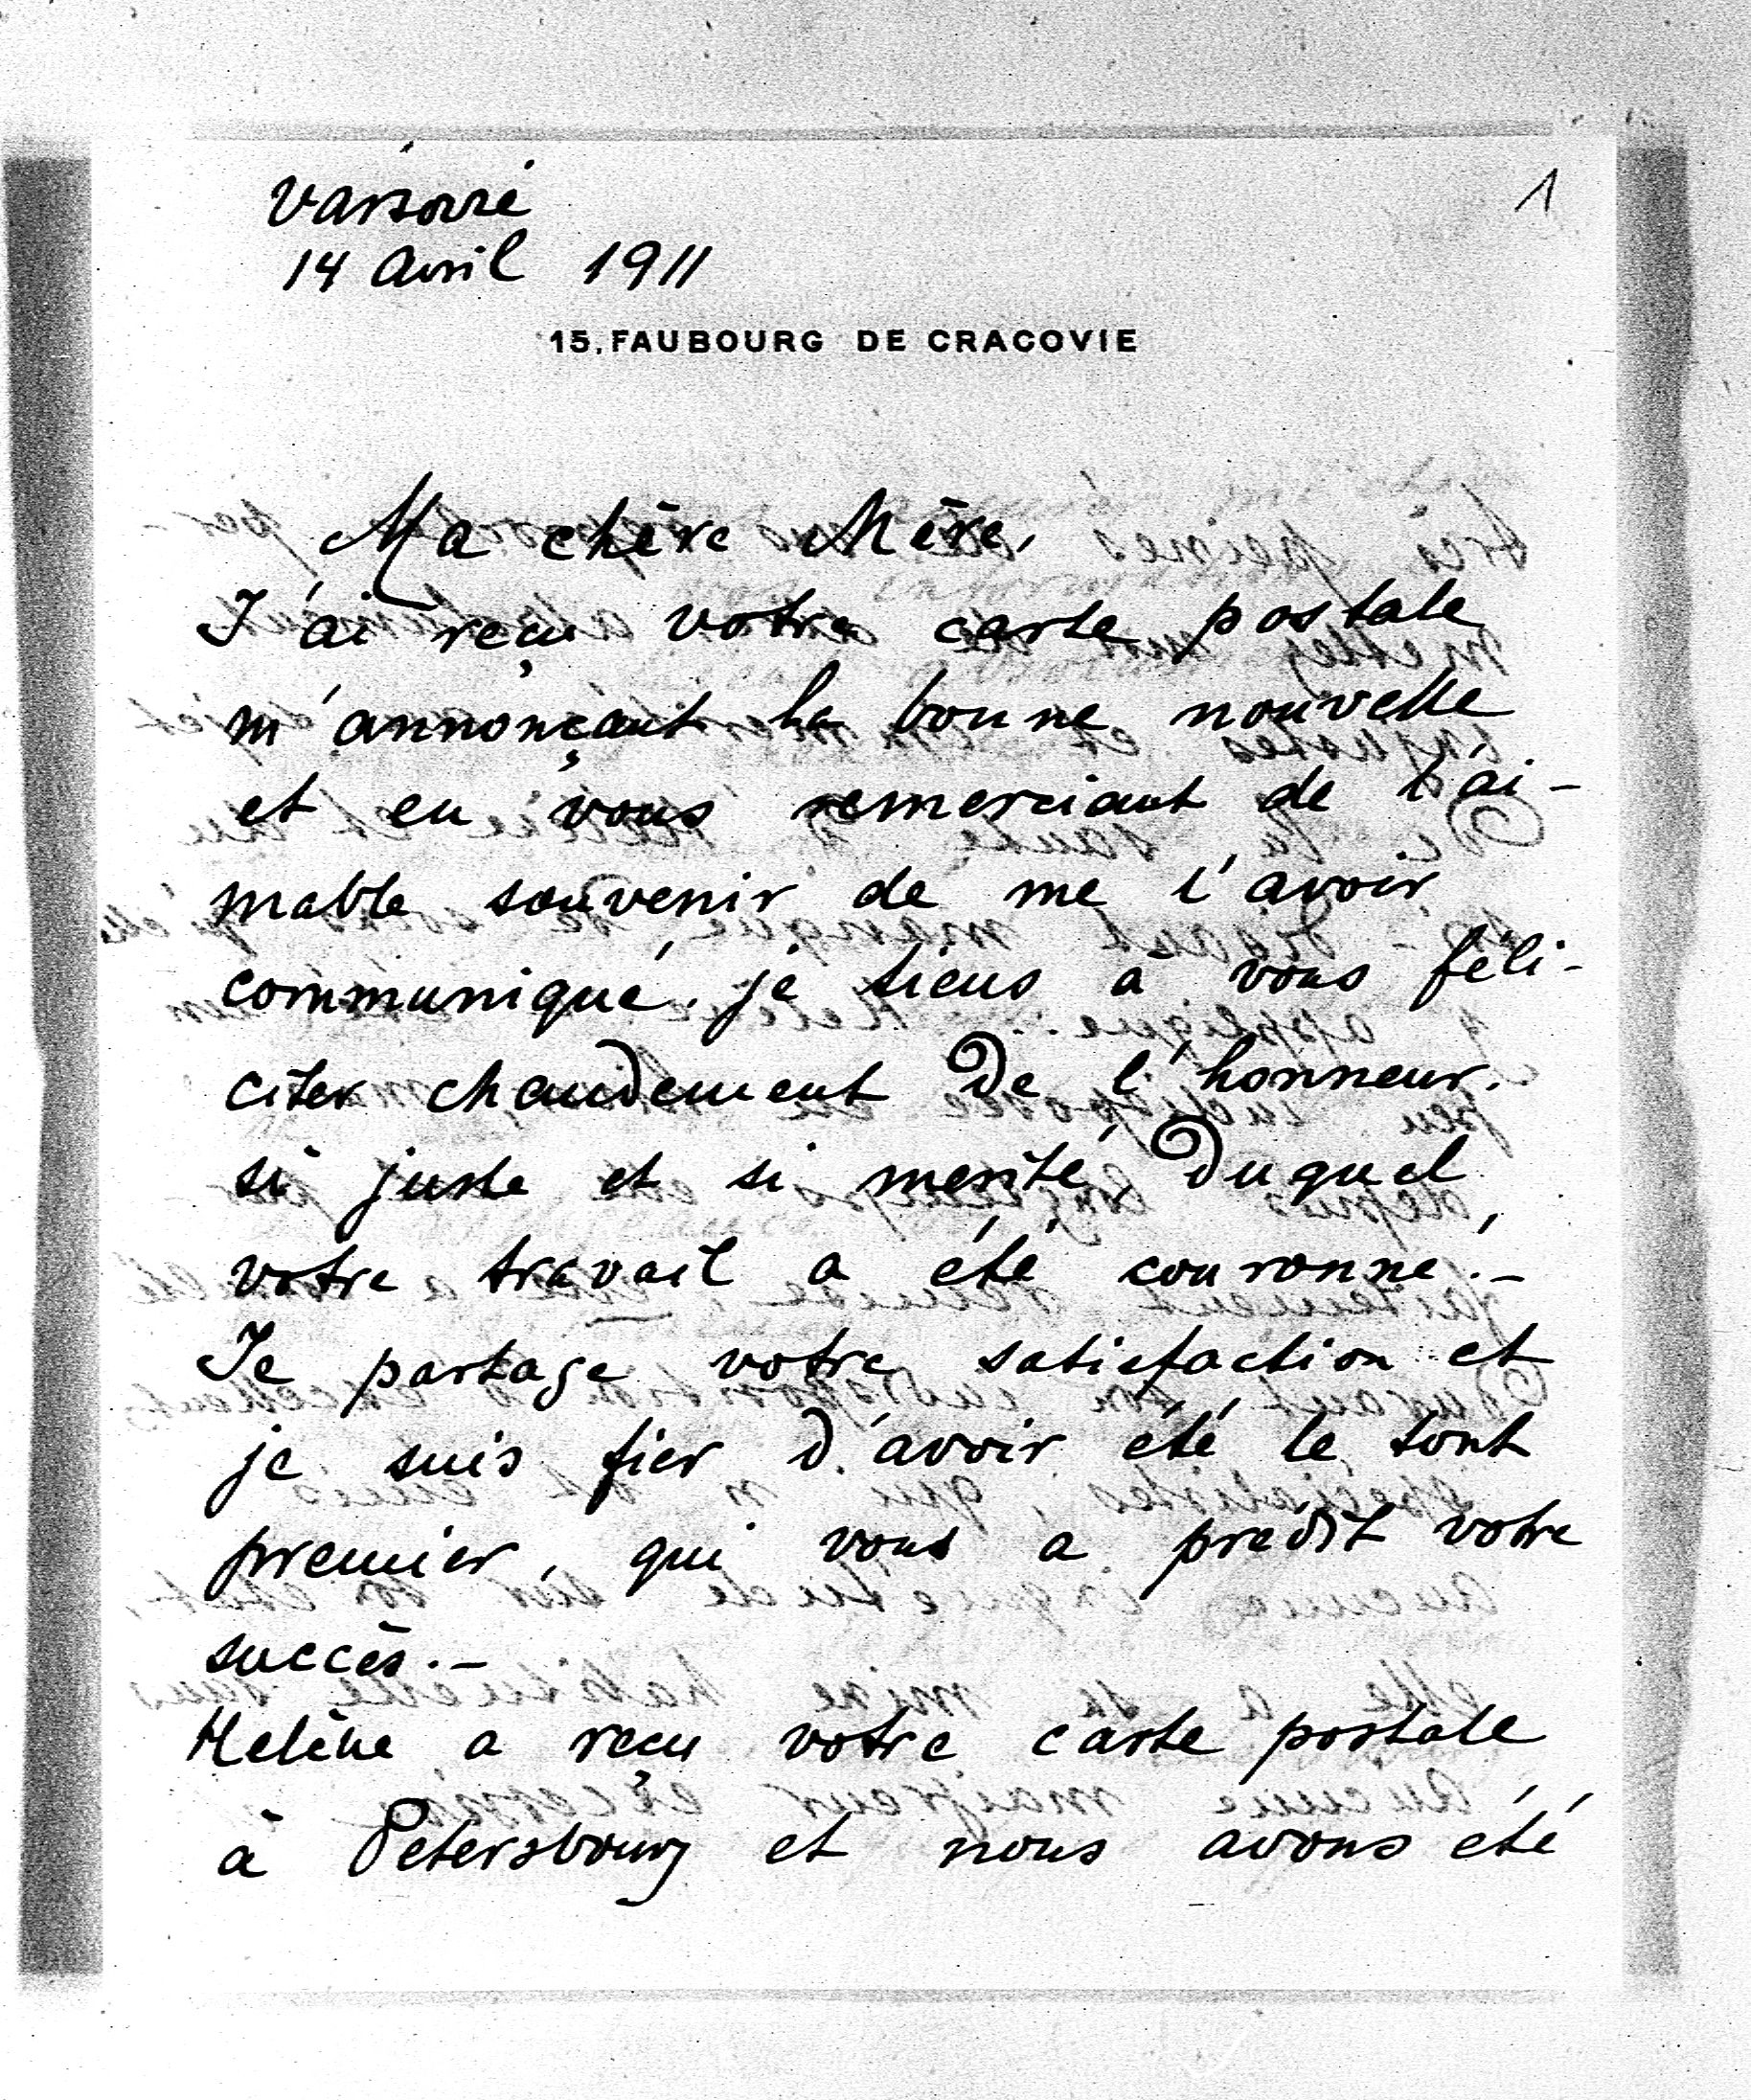 Varsovie
1
14 Avril 1911
15, FAUBOURG DE CRACOVIE
Ma chère Mère,
J'ai reçu votre carte postale
m'annonçant la bonne nouvelle
et en vous remerciant de l'ai-
mable souvenir de me l'avoir
communiqué, je tiens à vous féli-
citer chaudement de l'honneur
si juste et si merité duquel
votre travail a été couronné.-
Je partage votre satisfaction et
je suis fier d'avoir été le tout
premier, qui vous a prédit votre
succès.-
Helène a reçu votre carte postale
à Petersbourg et nous avons été